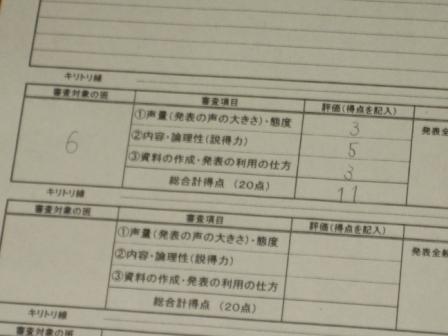 キリトリ線
審査対象の班 審査項目 評価(得点を記入)
6 ①声量(発表の声の大きさ)・態度 3 発表全
②内容・論理性(説得力) 5
③資料の作成・発表の利用の仕方 3
総合計得点 (20点) 11
キリトリ線
審査対象の班 審査項目 評価(得点を記入)
①声量(発表の声の大きさ)・態度 発表全般
②内容・論理性(説得力)
③資料の作成・発表の利用の仕方
総合計得点 (20点)
キリトリ線
審査対象の班